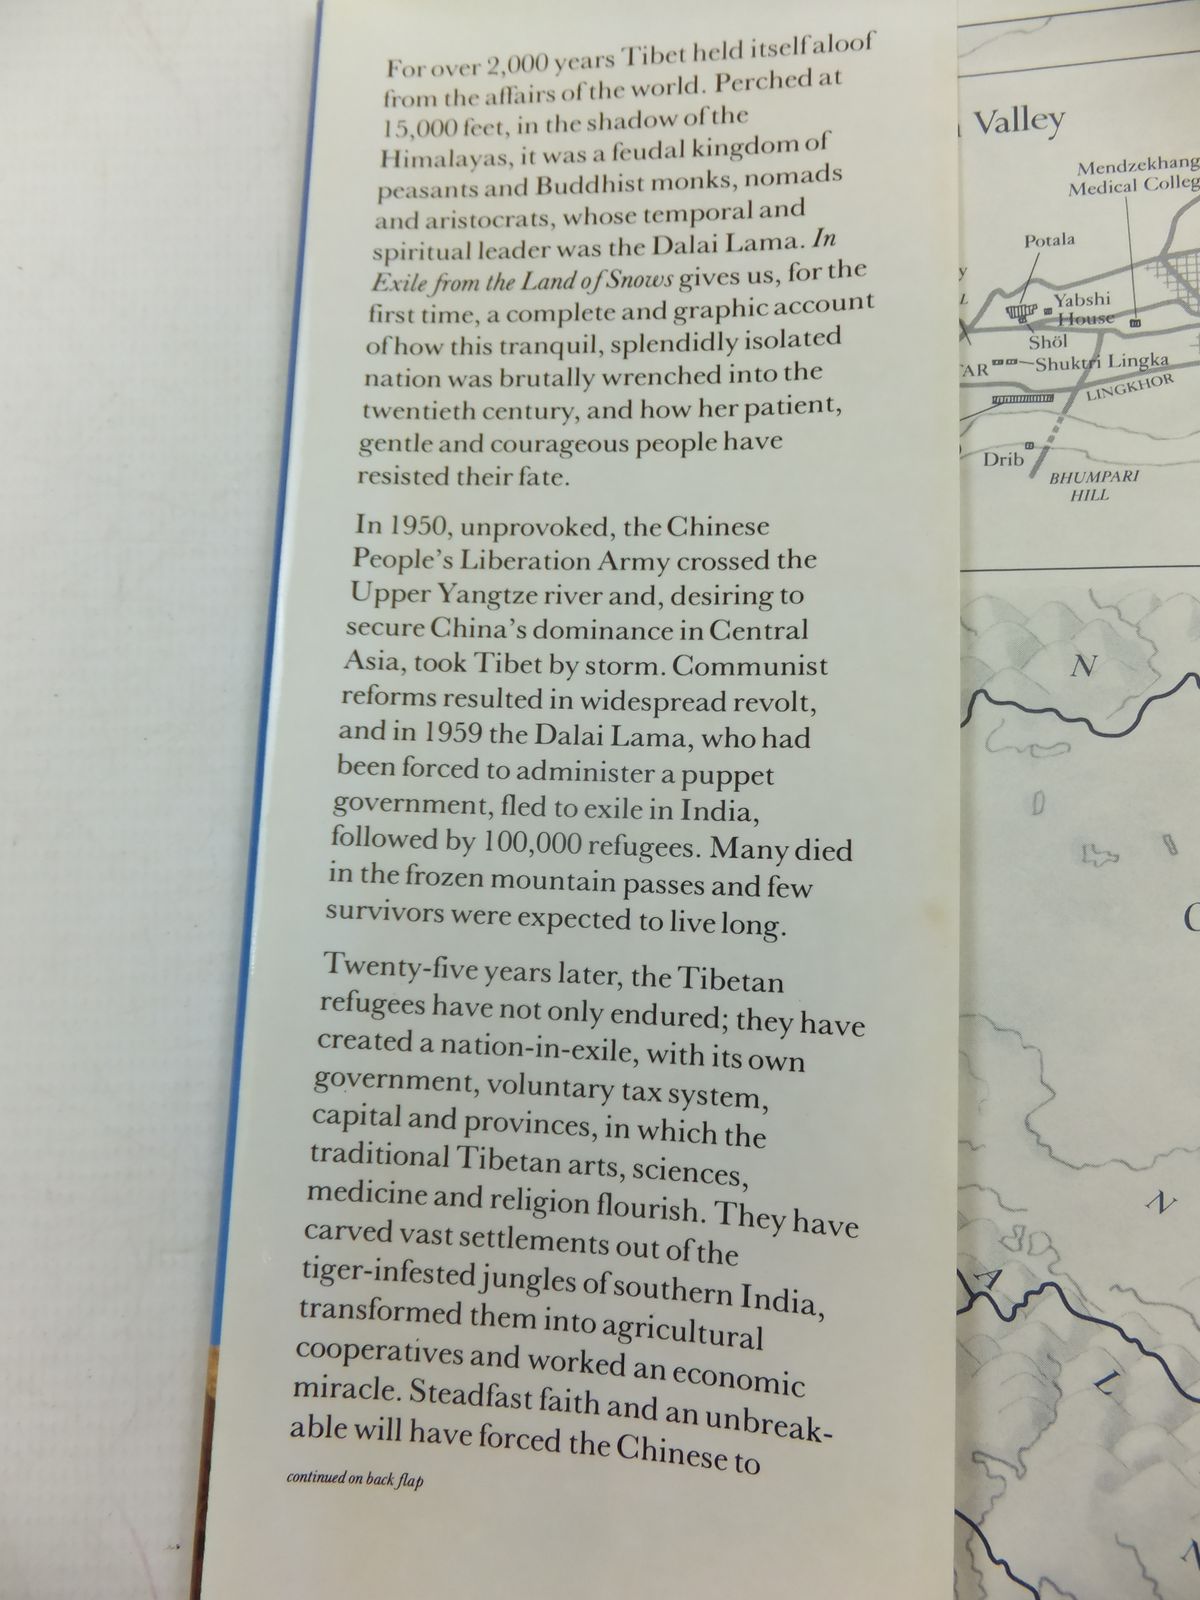 For over 2,000 years Tibet held itself aloof
from the affairs of the world. Perched at
15,000 feet, in the shadow of the
Himalayas, it was a feudal kingdom of
peasants and Buddhist monks, nomads
and aristocrats, whose temporal and
spiritual leader was the Dalai Lama. In
Exile from the Land of Snows gives us, for the
first time, a complete and graphic account
of how this tranquil, splendidly isolated
nation was brutally wrenched into the
twentieth century, and how her patient,
gentle and courageous people have
resisted their fate.
In 1950, unprovoked, the Chinese
People's Liberation Army crossed the
Upper Yangtze river and, desiring to
secure China's dominance in Central
Asia, took Tibet by storm. Communist
reforms resulted in widespread revolt,
and in 1959 the Dalai Lama, who had
been forced to administer a puppet
government, fled to exile in India,
followed by 100,000 refugees. Many died
in the frozen mountain passes and few
survivors were expected to live long.
Twenty-five years later, the Tibetan
refugees have not only endured; they have
created a nation-in-exile, with its own
government, voluntary tax system,
capital and provinces, in which the
traditional Tibetan arts, sciences,
medicine and religion flourish. They have
carved vast settlements out of the
tiger-infested jungles of southern India,
transformed them into agricultural
cooperatives and worked an economic
miracle. Steadfast faith and an unbreak-
able will have forced the Chinese to
continued on back flap
Valley
Mendzekhang
Medical Colleg
Potala
Yabshi
House
Shöl
AR
Shuktri Lingka
LINGKHOR
Drib
BHUMPARI
HILL
N
N
A
L